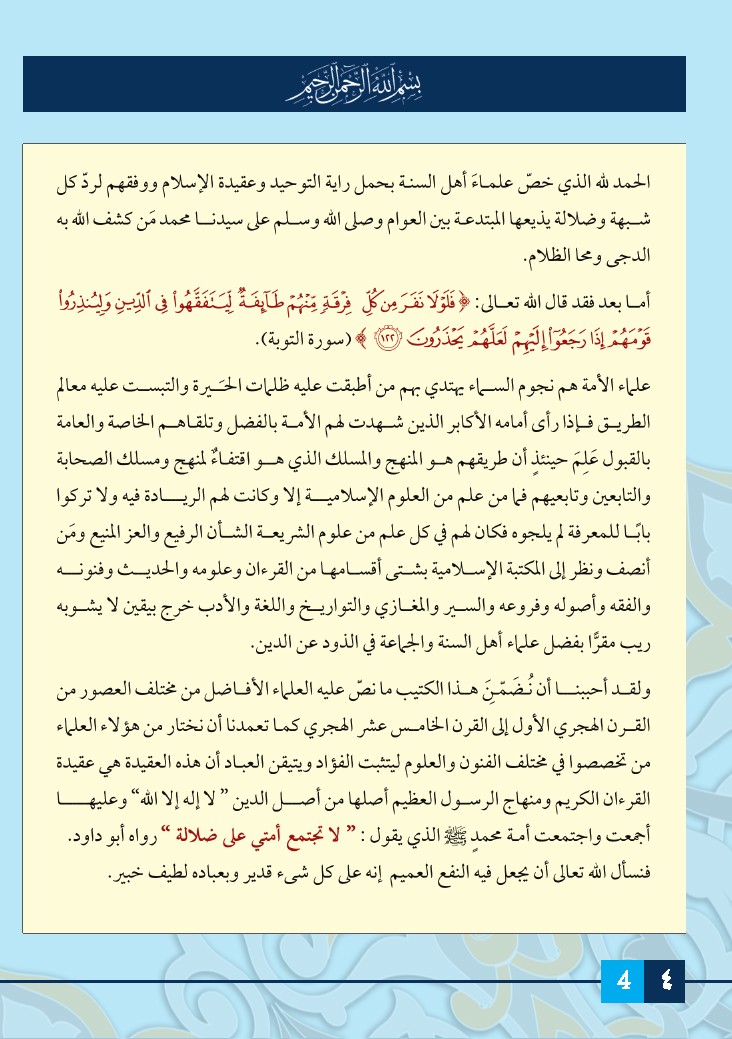 بسم الله الرحمن الرحيم
الحمد لله الذي خصّ علماءَ أهل السنة بحمل راية التوحيد وعقيدة الإسلام ووفقهم لردّ كل
شبهة وضلالة يذيعها المبتدعة بين العوام وصلى الله وسلم على سيدنا محمد مَن كشف الله به
الدجى ومحا الظلام.
أما بعد فقد قال الله تعالى: ﴿ فَلَوۡلَا نَفَرَ مِن كُلِّ فِرۡقَةٖ مِّنۡهُمۡ طَآئِفَةٞ لِّيَتَفَقَّهُواْ فِي ٱلدِّينِ وَلِيُنذِرُواْ
قَوۡمَهُمۡ إِذَا رَجَعُوٓاْ إِلَيۡهِمۡ لَعَلَّهُمۡ يَحۡذَرُونَ ١٢٢ ﴾ (سورة التوبة).
علماء الأمة هم نجوم السماء يهتدي بهم من أطبقت عليه ظلمات الحَيرة والتبست عليه معالم
الطريق فإذا رأى أمامه الأكابر الذين شهدت لهم الأمة بالفضل وتلقاهم الخاصة والعامة
بالقبول عَلِمَ حينئذٍ أن طريقهم هو المنهج والمسلك الذي هو اقتفاءٌ لمنهج ومسلك الصحابة
والتابعين وتابعيهم فما من علم من العلوم الإسلامية إلا وكانت لهم الريادة فيه ولا تركوا
بابًا للمعرفة لم يلجوه فكان لهم في كل علم من علوم الشريعة الشأن الرفيع والعز المنيع ومَن
أنصف ونظر إلى المكتبة الإسلامية بشتى أقسامها من القرءان وعلومه والحديث وفنونه
والفقه وأصوله وفروعه والسير والمغازي والتواريخ واللغة والأدب خرج بيقين لا يشوبه
ريب مقرًّا بفضل علماء أهل السنة والجماعة في الذود عن الدين.
ولقد أحببنا أن نُضَمّنَ هذا الكتيب ما نصّ عليه العلماء الأفاضل من مختلف العصور من
القرن الهجري الأول إلى القرن الخامس عشر الهجري كما تعمدنا أن نختار من هؤلاء العلماء
من تخصصوا في مختلف الفنون والعلوم ليتثبت الفؤاد ويتيقن العباد أن هذه العقيدة هي عقيدة
القرءان الكريم ومنهاج الرسول العظيم أصلها من أصل الدين ” لا إله إلا الله“ وعليها
أجمعت واجتمعت أمة محمدٍ ﷺ الذي يقول : ” لا تجتمع أمتي على ضلالة “ رواه أبو داود.
فنسأل الله تعالى أن يجعل فيه النفع العميم إنه على كل شىء قدير وبعباده لطيف خبير.
4 ٤